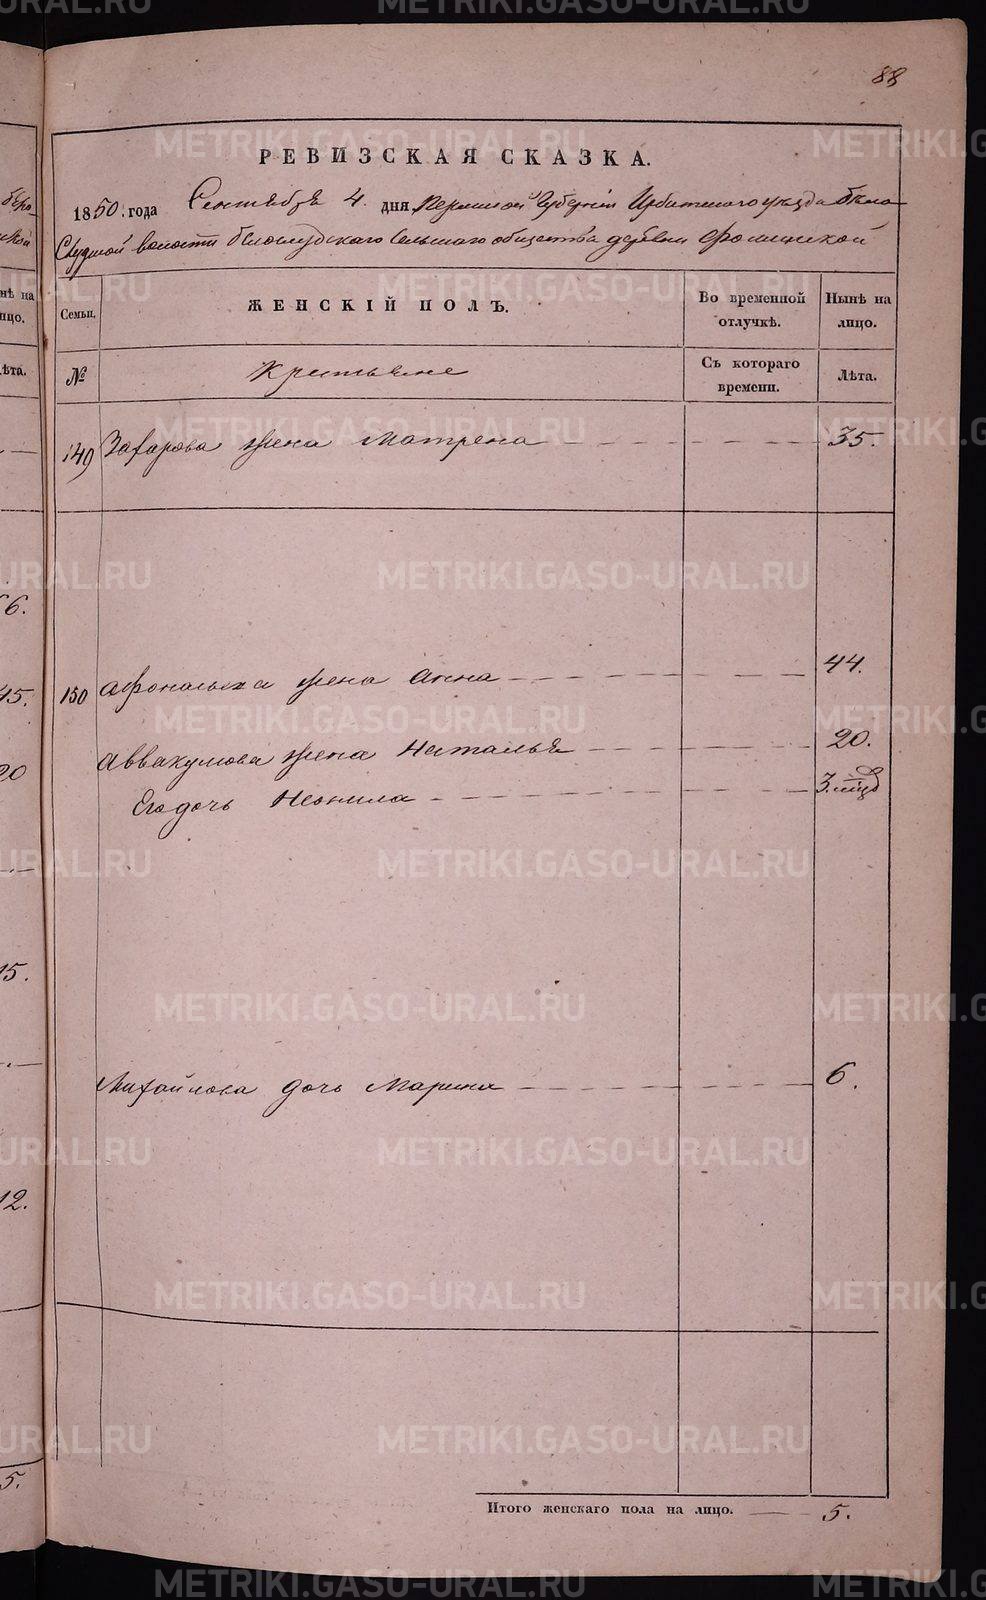 88
РЕВИЗСКАЯ СКАЗКА.
1850. года Сентября 4. дня Пермской Губерніи Ирбитскаго уѣзда Бѣло-
Слудской волости Белослудскаго Сельскаго общества деревни Фоминской
Семьи. ЖЕНСКІЙ ПОЛЪ. Во временной отлучкѣ. Нынѣ на лицо.
№ Крестьяне Съ котораго времени. Лѣта.
149 Захарова жена Матрена 35.
150 Афонасья жена Анна 44.
Аввакумова жена Наталья 20.
Его дочь Неонила 3. мѣсд
Михайлова дочь Марина 6.
Итого женскаго пола на лицо. 5.
нѣ на
ицо.
ѣта.
6.
45.
20
15.
12.
5.
METRIKI.GASO-URAL.RU